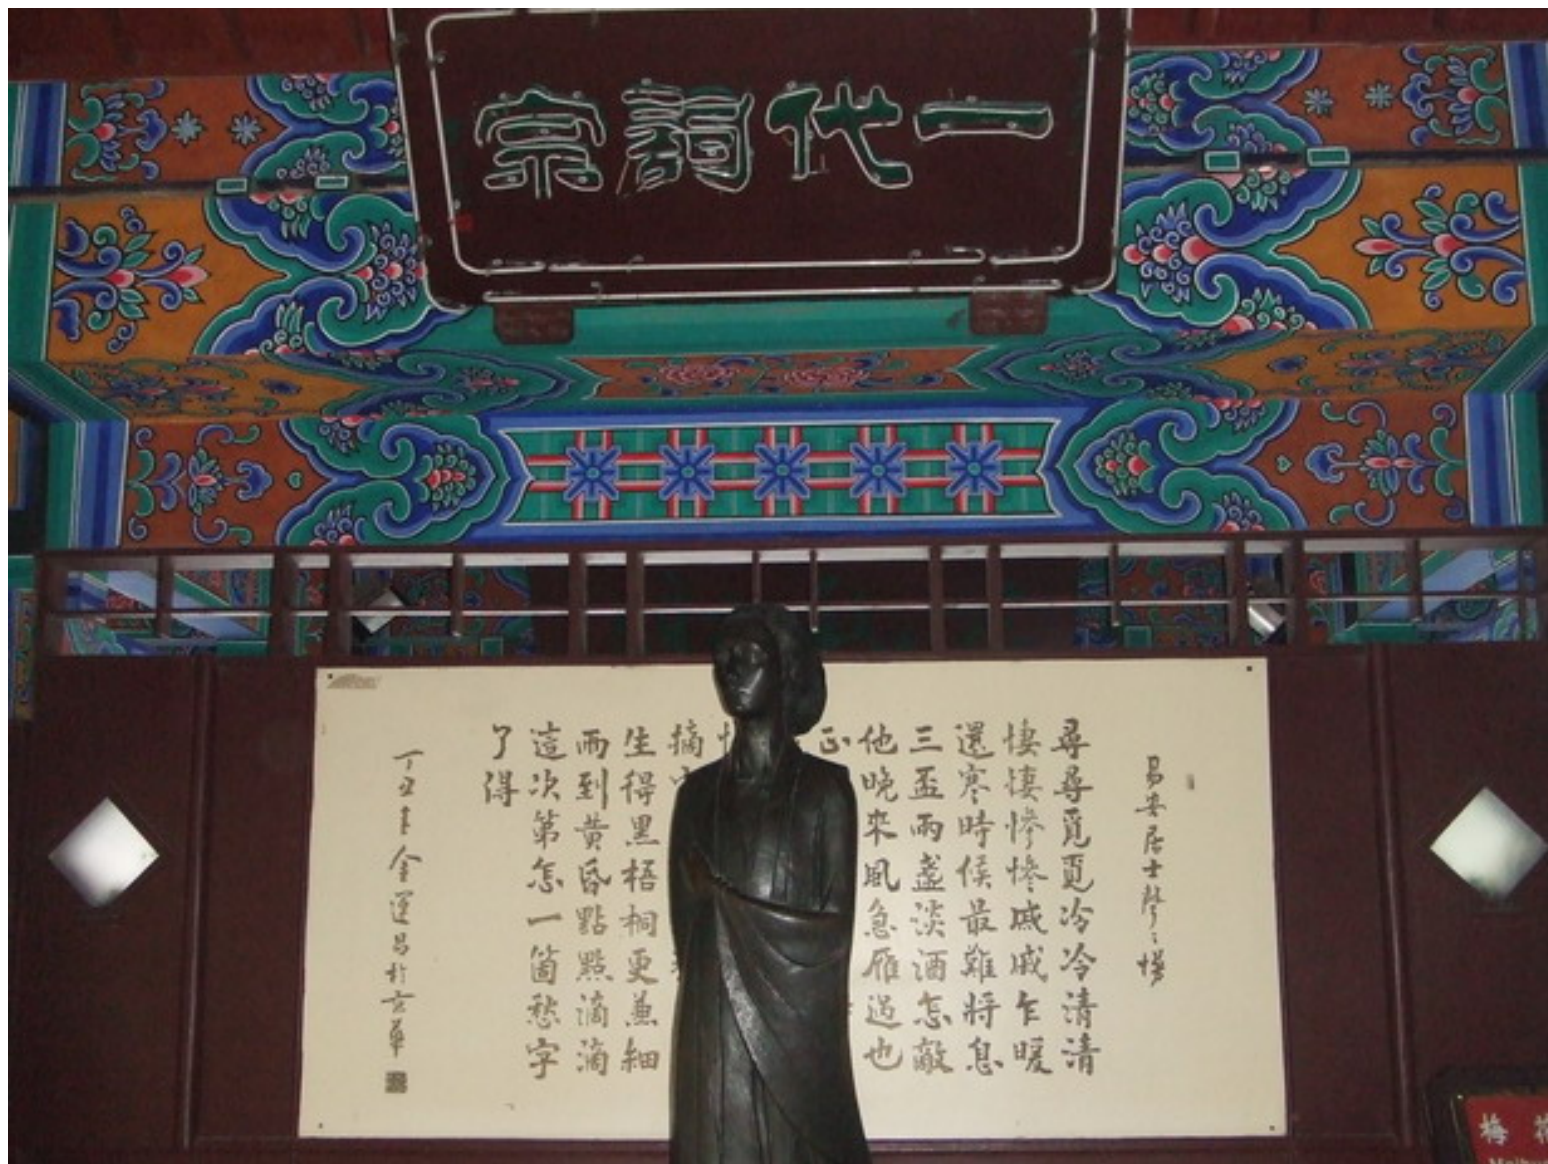 一代詞宗
易安居士聲〻慢
尋尋覓覓冷冷清清
悽悽慘慘戚戚乍暖
還寒時候最難將息
三盃兩盞淡酒怎敵
他晚來風急雁過也
正
摘
生得黑梧桐更兼細
雨到黃昏點點滴滴
這次第怎一箇愁字
了得
丁丑冬金運昌於京華
梅